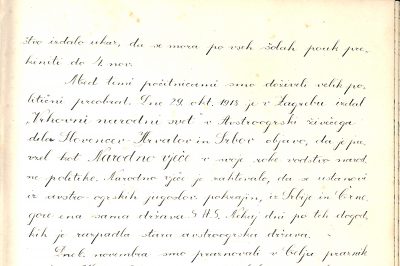 stvo izdalo ukaz, da se mora po vseh šolah pouk pre-
kiniti do 4. nov.
Med temi počitnicami smo doživeli velik po-
litični preobrat. Dne 29. okt. 1918 je v Zagrebu izdal
„Vrhovni narodni svet" v Avstroogrski živečega
dela Slovencev Hrvatov in Srbov objavo, da je pre-
vzel kot Narodno vječe v svoje roke vodstvo narod-
ne politike. Narodno vječe je zahtevalo, da se ustanovi
iz avstro-ogrskih jugoslov. pokrajin, iz Srbije in Črne
gore ena sama država S.H.S. Nekaj dni po teh dogod-
kih je razpadla stara avstroogrska država.
novembra smo praznovali v božju praznik